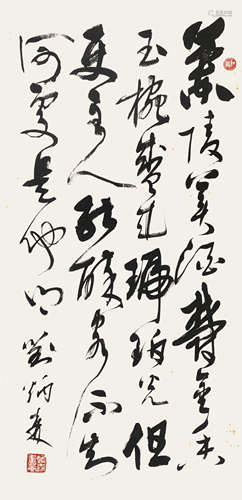 蘭陵美酒欝金香
玉椀盛来琥珀光但
使主人能醉客不知
何處是他鄉 劉炳森